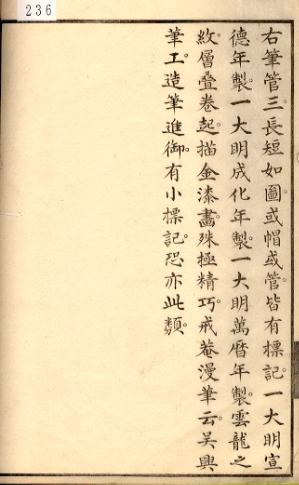 236
右筆管三。長短如圖。或帽或管。皆有標記。一大明宣
德年製。一大明成化年製。一大明萬曆年製。雲龍之
紋。層疊卷起。描金漆畫。殊極精巧。戒菴漫筆云。吳興
筆工。造筆進御。有小標記。恐亦此類。